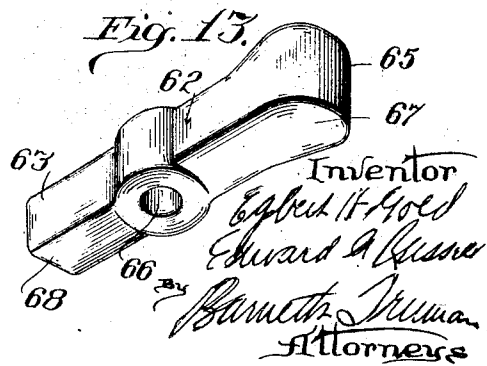 Fig. 13.
62
65
67
63
66
68
Inventor
Egbert H Gold
Edward A. Russell
By Barnett & Truman
Attorneys